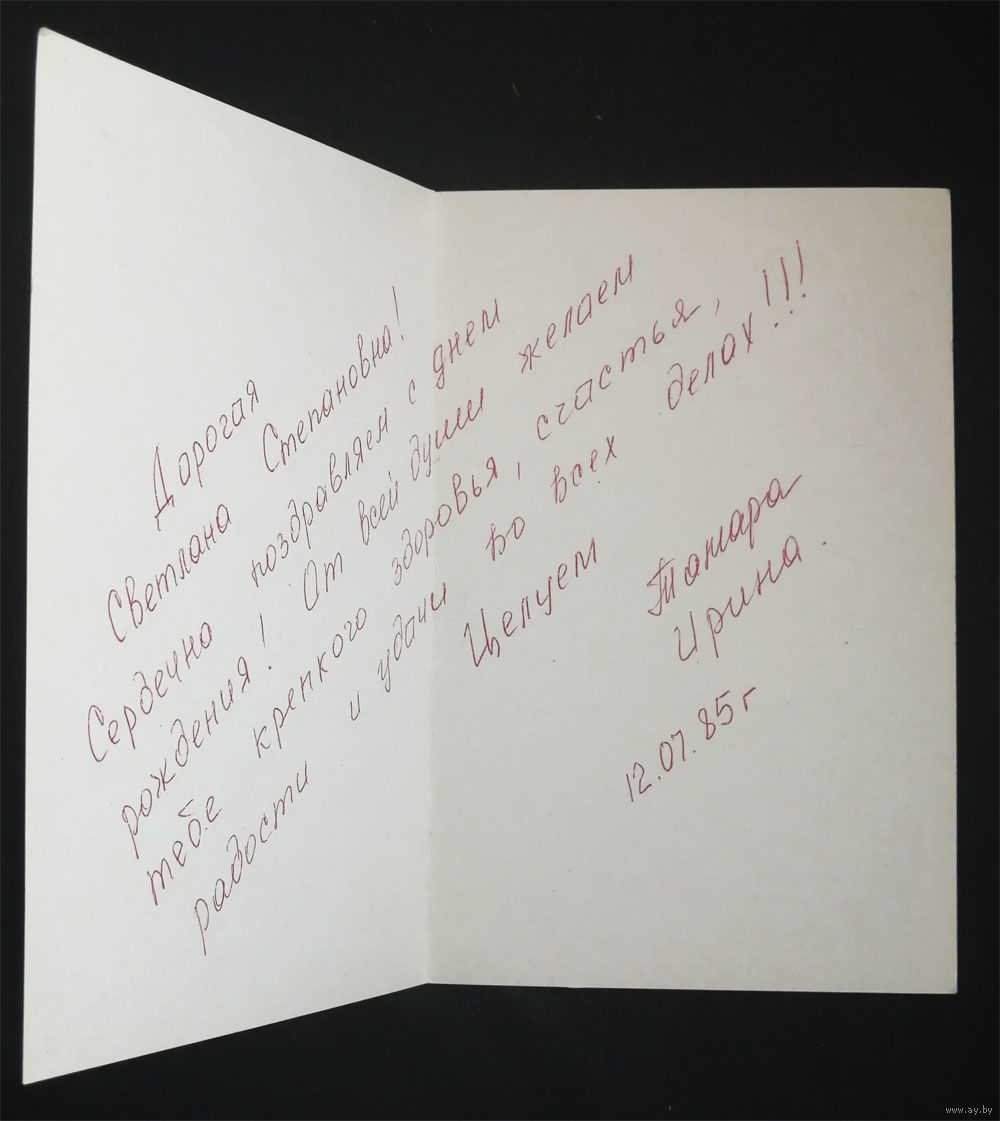 Дорогая
Светлана Степановна!
Сердечно поздравляем с днем
рождения! От всей души желаем
тебе крепкого здоровья, счастья,
радости и удачи во всех делах!!!
Целуем Тамара
Ирина.
12.07.85г
www.ay.by